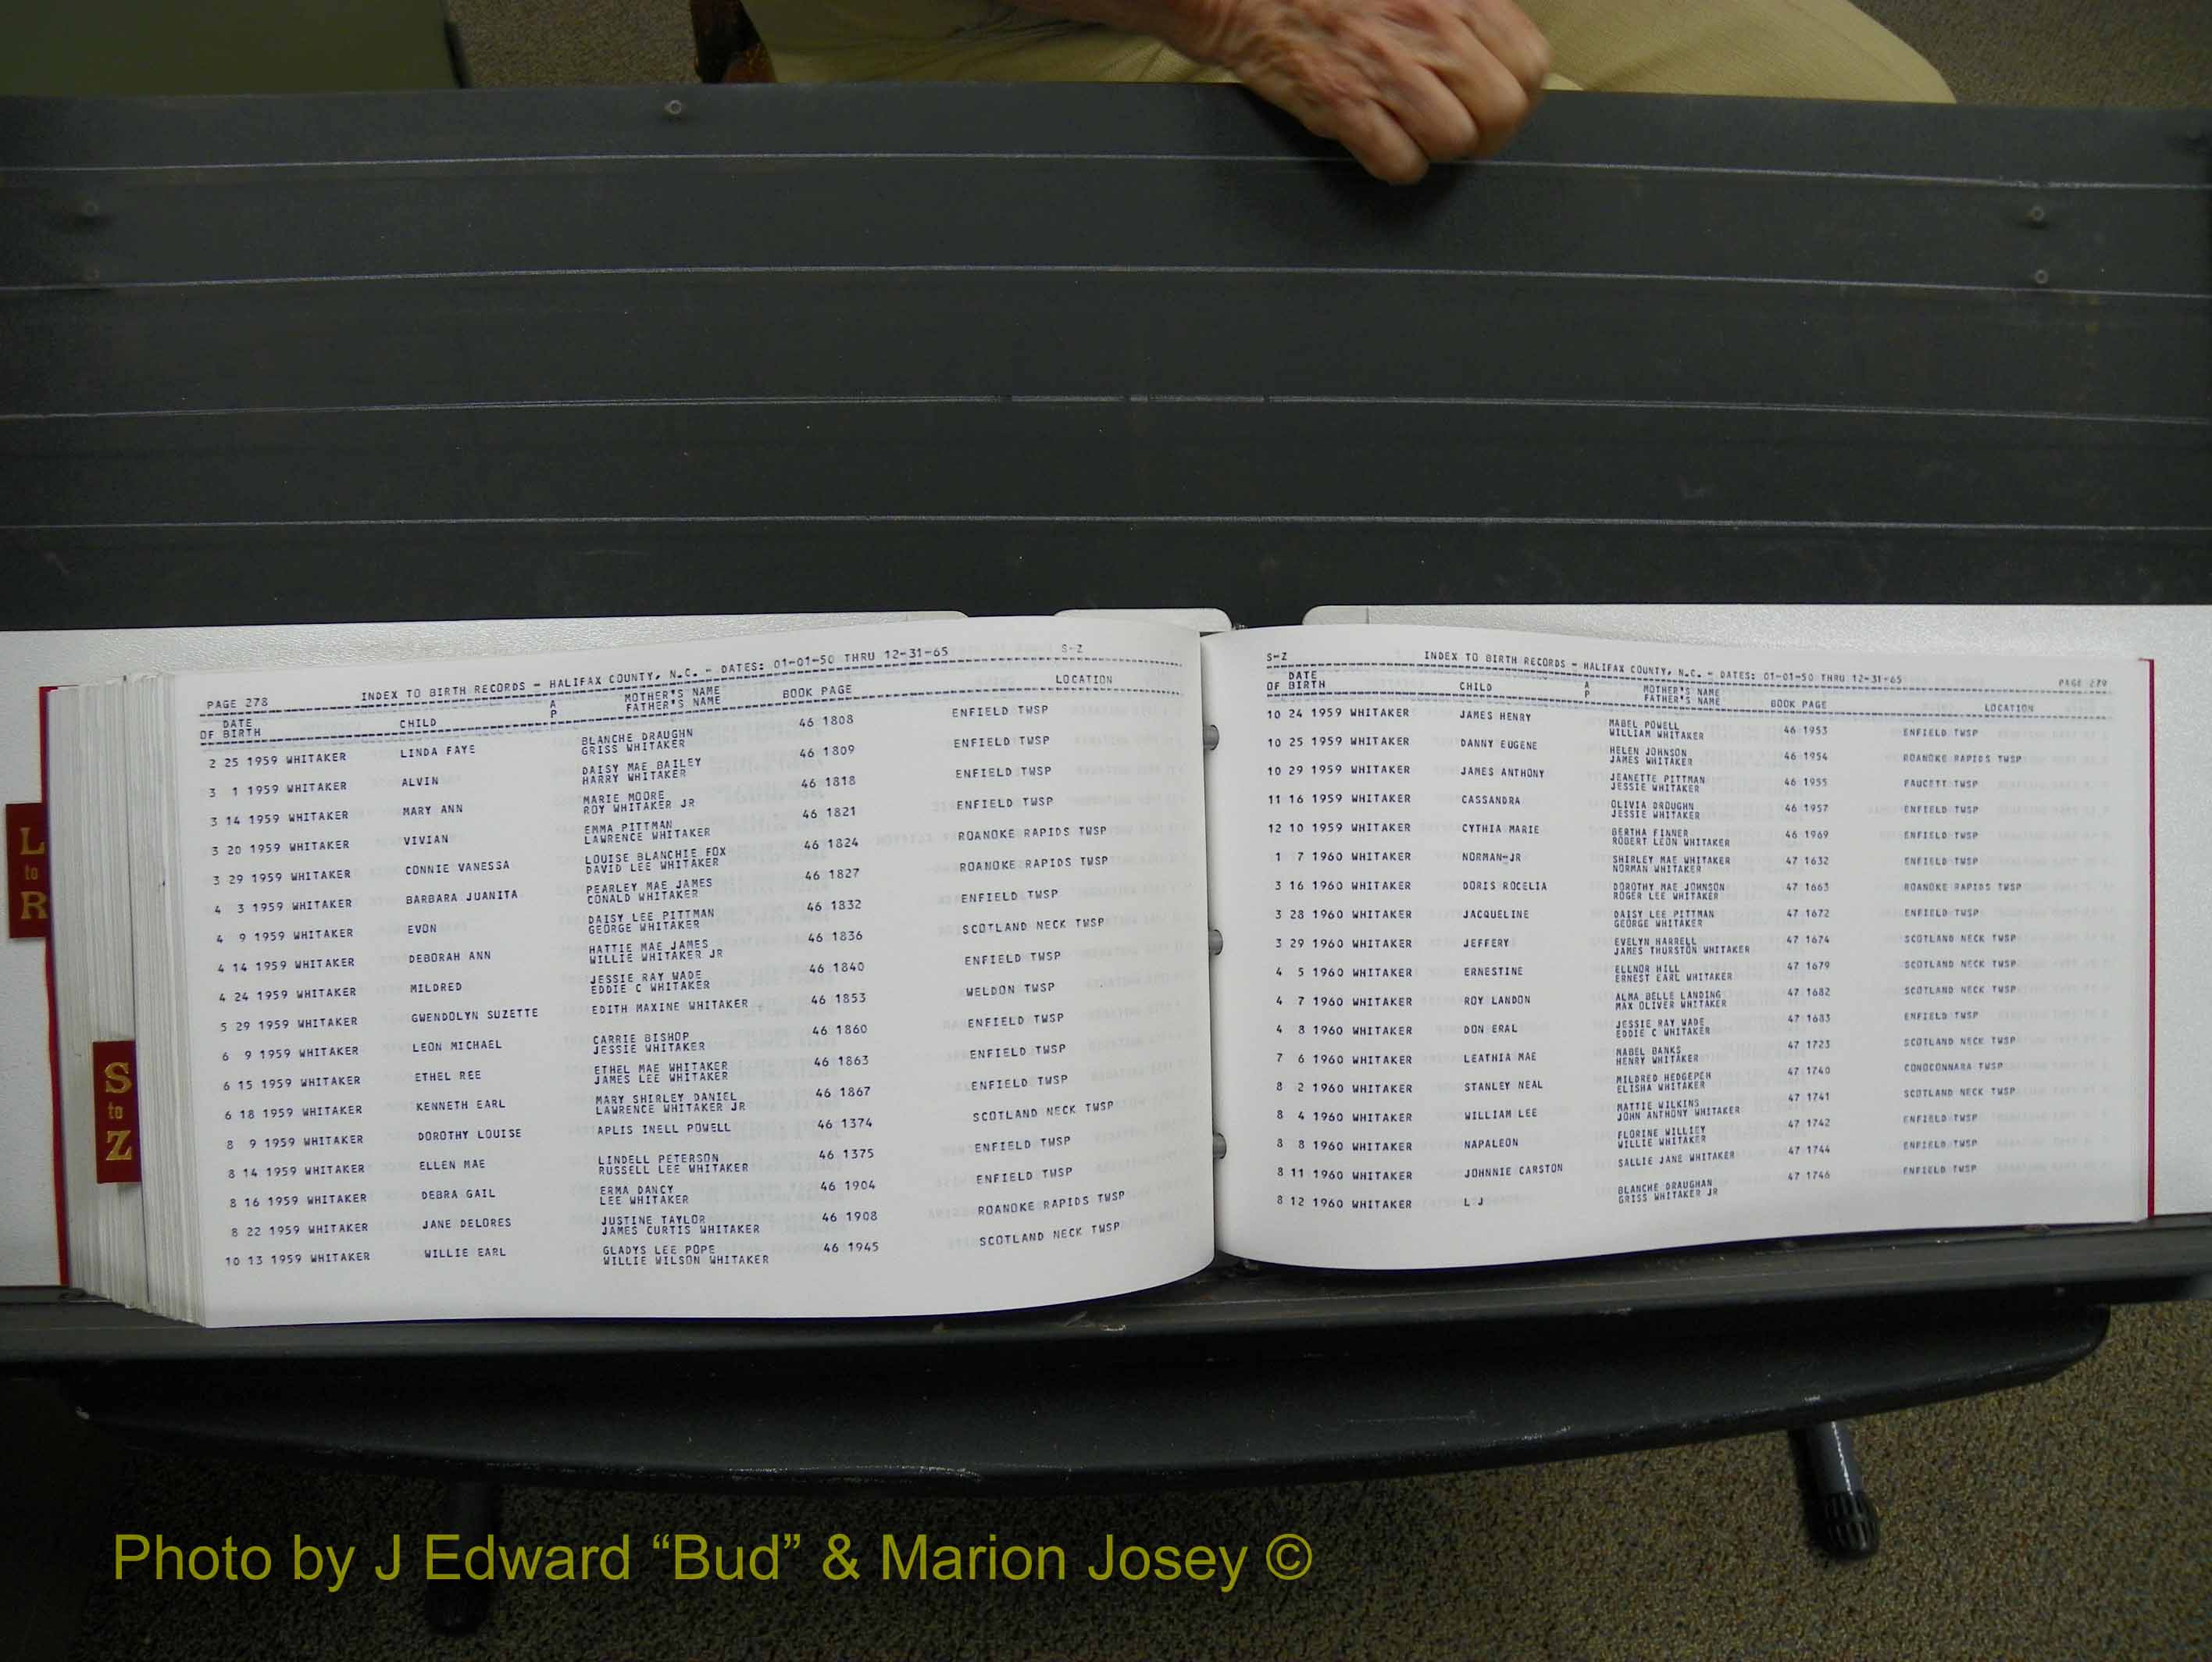 L
to
R
S
to
Z
PAGE 278 INDEX TO BIRTH RECORDS - HALIFAX COUNTY, N.C. - DATES: 01-01-50 THRU 12-31-65 S-Z
DATE OF BIRTH CHILD A P MOTHER'S NAME FATHER'S NAME BOOK PAGE LOCATION
2 25 1959 WHITAKER LINDA FAYE BLANCHE DRAUGHN 46 1808 ENFIELD TWSP
GRISS WHITAKER
3 1 1959 WHITAKER ALVIN DAISY MAE BAILEY 46 1809 ENFIELD TWSP
HARRY WHITAKER
3 14 1959 WHITAKER MARY ANN MARIE MOORE 46 1818 ENFIELD TWSP
ROY WHITAKER JR
3 20 1959 WHITAKER VIVIAN EMMA PITTMAN 46 1821 ENFIELD TWSP
LAWRENCE WHITAKER
3 29 1959 WHITAKER CONNIE VANESSA LOUISE BLANCHIE FOX 46 1824 ROANOKE RAPIDS TWSP
DAVID LEE WHITAKER
4 3 1959 WHITAKER BARBARA JUANITA PEARLEY MAE JAMES 46 1827 ROANOKE RAPIDS TWSP
CONALD WHITAKER
4 9 1959 WHITAKER EVON DAISY LEE PITTMAN 46 1832 ENFIELD TWSP
GEORGE WHITAKER
4 14 1959 WHITAKER DEBORAH ANN HATTIE MAE JAMES 46 1836 SCOTLAND NECK TWSP
WILLIE WHITAKER JR
4 24 1959 WHITAKER MILDRED JESSIE RAY WADE 46 1840 ENFIELD TWSP
EDDIE C WHITAKER
5 29 1959 WHITAKER GWENDOLYN SUZETTE EDITH MAXINE WHITAKER 46 1853 WELDON TWSP
6 9 1959 WHITAKER LEON MICHAEL CARRIE BISHOP 46 1860 ENFIELD TWSP
JESSIE WHITAKER
6 15 1959 WHITAKER ETHEL REE ETHEL MAE WHITAKER 46 1863 ENFIELD TWSP
JAMES LEE WHITAKER
6 18 1959 WHITAKER KENNETH EARL MARY SHIRLEY DANIEL 46 1867 ENFIELD TWSP
LAWRENCE WHITAKER JR
8 9 1959 WHITAKER DOROTHY LOUISE APLIS INELL POWELL 46 1374 SCOTLAND NECK TWSP
8 14 1959 WHITAKER ELLEN MAE LINDELL PETERSON 46 1375 ENFIELD TWSP
RUSSELL LEE WHITAKER
8 16 1959 WHITAKER DEBRA GAIL ERMA DANCY 46 1904 ENFIELD TWSP
LEE WHITAKER
8 22 1959 WHITAKER JANE DELORES JUSTINE TAYLOR 46 1908 ROANOKE RAPIDS TWSP
JAMES CURTIS WHITAKER
10 13 1959 WHITAKER WILLIE EARL GLADYS LEE POPE 46 1945 SCOTLAND NECK TWSP
WILLIE WILSON WHITAKER
S-Z INDEX TO BIRTH RECORDS - HALIFAX COUNTY, N.C. - DATES: 01-01-50 THRU 12-31-65 PAGE 279
DATE OF BIRTH CHILD A P MOTHER'S NAME FATHER'S NAME BOOK PAGE LOCATION
10 24 1959 WHITAKER JAMES HENRY MABEL POWELL 46 1953 ENFIELD TWSP
WILLIAM WHITAKER
10 25 1959 WHITAKER DANNY EUGENE HELEN JOHNSON 46 1954 ROANOKE RAPIDS TWSP
JAMES WHITAKER
10 29 1959 WHITAKER JAMES ANTHONY JEANETTE PITTMAN 46 1955 FAUCETT TWSP
JESSIE WHITAKER
11 16 1959 WHITAKER CASSANDRA OLIVIA DROUGHN 46 1957 ENFIELD TWSP
JESSIE WHITAKER
12 10 1959 WHITAKER CYTHIA MARIE BERTHA FINNER 46 1969 ENFIELD TWSP
ROBERT LEON WHITAKER
1 7 1960 WHITAKER NORMAN-JR SHIRLEY MAE WHITAKER 47 1632 ENFIELD TWSP
NORMAN WHITAKER
3 16 1960 WHITAKER DORIS ROCELIA DOROTHY MAE JOHNSON 47 1663 ROANOKE RAPIDS TWSP
ROGER LEE WHITAKER
3 28 1960 WHITAKER JACQUELINE DAISY LEE PITTMAN 47 1672 ENFIELD TWSP
GEORGE WHITAKER
3 29 1960 WHITAKER JEFFERY EVELYN HARRELL 47 1674 SCOTLAND NECK TWSP
JAMES THURSTON WHITAKER
4 5 1960 WHITAKER ERNESTINE ELLNOR HILL 47 1679 SCOTLAND NECK TWSP
ERNEST EARL WHITAKER
4 7 1960 WHITAKER ROY LANDON ALMA BELLE LANDING 47 1682 SCOTLAND NECK TWSP
MAX OLIVER WHITAKER
4 8 1960 WHITAKER DON ERAL JESSIE RAY WADE 47 1683 ENFIELD TWSP
EDDIE C WHITAKER
7 6 1960 WHITAKER LEATHIA MAE MABEL BANKS 47 1723 SCOTLAND NECK TWSP
HENRY WHITAKER
8 2 1960 WHITAKER STANLEY NEAL MILDRED HEDGEPEH 47 1740 CONOCONNARA TWSP
ELISHA WHITAKER
8 4 1960 WHITAKER WILLIAM LEE MATTIE WILKINS 47 1741 SCOTLAND NECK TWSP
JOHN ANTHONY WHITAKER
8 8 1960 WHITAKER NAPALEON FLORINE WILLIEY 47 1742 ENFIELD TWSP
WILLIE WHITAKER
8 11 1960 WHITAKER JOHNNIE CARSTON SALLIE JANE WHITAKER 47 1744 ENFIELD TWSP
8 12 1960 WHITAKER L J BLANCHE DRAUGHAN 47 1746 ENFIELD TWSP
GRISS WHITAKER JR
Photo by J Edward “Bud” & Marion Josey ©